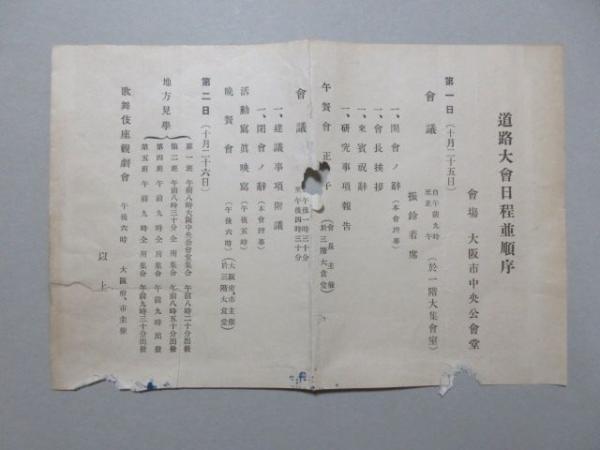 道路大會日程並順序
會場 大阪市中央公會堂
第一日(十月二十五日)
會議 自午前九時 至正午 (於一階大集會室)
振鈴着席
一、開會ノ辭(本會幹事)
一、會長挨拶
一、來賓祝辭
一、研究事項報告
午餐會 正午 (會長主催 於三階大食堂)
會議 午後一時三十分 至午後四時三十分
一、建議事項附議
一、閉會ノ辭(本會幹事)
活動寫眞映寫(午後五時)
晩餐會(午後六時)(大阪府、市主催 於三階大食堂)
第二日(十月二十六日)
地方見學
第一班 午前八時大阪中央公會堂集合 午前八時二十分出發
第二班 午前八時三十分仝所集合 午前八時五十分出發
第四班 午前九時仝所集合 午前九時出發
第五班 午前九時仝所集合 午前九時三十分出發
歌舞伎座觀劇會 午後六時 大阪府、市主催
以上